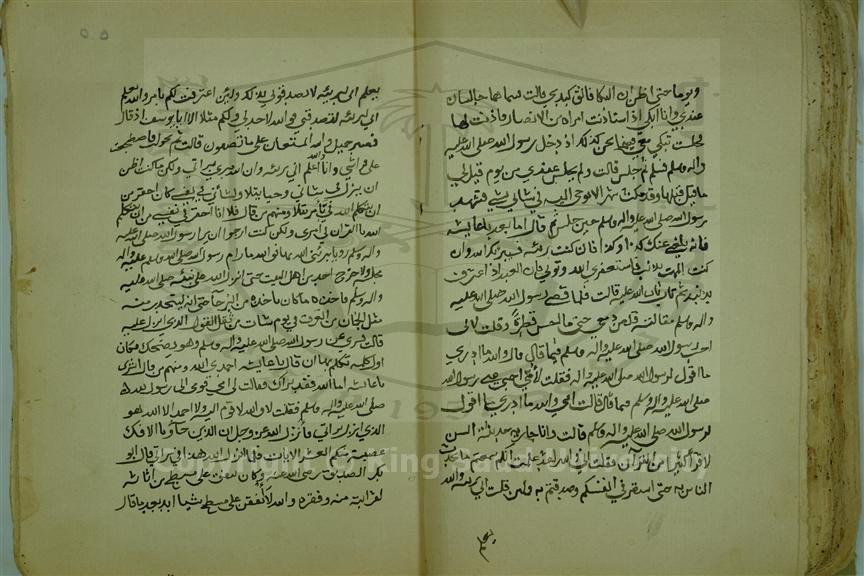 ويوما حتى اظن ان البكا فالق كبدي قالت فبينما هما جالسان
عندي وانا ابكي اذ استأذنت امراة من الانصار فاذنت لها
فجلست تبكي معي فبينا نحن كذلك اذ دخل رسول الله صلى الله عليه
واله وسلم فسلم ثم جلس قالت ولم يجلس عندي من يوم قيل لي
ما قيل قبلها وقد مكث شهرا لا يوحى اليه في شاني بشي فتشهد
رسول الله صلى الله عليه واله وسلم حين جلس ثم قال اما بعد يا عايشة
فانه بلغني عنك كذا وكذا فان كنت بريئة فسيبرئك الله وان
كنت الممت بذنب فاستغفري الله وتوبي فان العبد اذا اعترف
بذنبه ثم تاب تاب الله عليه قالت فلما قضى رسول الله صلى الله عليه
واله وسلم مقالته قلص دمعي حتى ما احس قطرة وقلت لابي
اجب رسول الله صلى الله عليه واله وسلم فيما قال قال والله ما ادري
ما اقول لرسول الله صلى الله عليه واله فقلت لأمي اجيبي عني رسول الله
صلى الله عليه واله وسلم فيما قال قالت امي والله ما ادري ما اقول
لرسول الله صلى الله عليه واله وسلم قالت وانا جارية حديثة السن
لا اقرأ كثيرا من القرآن فقلت اني والله لقد علمت انكم سمعتم ما تحدث
الناس به حتى استقر في انفسكم وصدقتم به ولئن قلت اني بريئة والله
يعلم
يعلم اني لبريئة لا تصدقوني بذلك ولئن اعترفت لكم بامر والله يعلم
اني لبريئة لتصدقني فوالله لا اجد لي ولكم مثلا الا ابا يوسف اذ قال
فصبر جميل والله المستعان على ما تصفون قالت ثم تحولت فاضطجعت
على فراشي وانا والله اعلم اني بريئة وان الله مبرئي ببراتي ولكن ما كنت اظن
ان ينزل في شاني وحيا يتلا ولشأني في نفسي كان احقر من
ان يتكلم الله في بأمر يتلا ومنهم من قال فلانا احقر في نفسي من ان يتكلم
الله بالقرآن في امري ولكن كنت ارجوا ان يرا رسول الله صلى الله عليه
واله وسلم رؤيا يبرئني الله بها فوالله ما رام رسول الله صلى الله وسلم عليه واله
مجلسه ولا خرج احد من اهل البيت حتى انزل الله على نبيه صلى الله عليه
واله وسلم فاخذه ما كان ياخذه من البرحآ حتى انه ليتحدر منه
مثل الجمان من العرق في يوم شات من ثقل القول الذي انزل عليه
قالت فسري عن رسول الله صلى الله عليه واله وسلم وهو يضحك فكان
اول كلمة تكلم بها ان قال يا عايشه احمدي الله ومنهم من قال ابشري
يا عايشه اما الله فقد براك فقالت لي امي قومي الى رسول الله
صلى الله عليه واله وسلم فقلت لا والله لا اقوم اليه ولا احمد الا الله هو
الذي انزل براتي فأنزل الله عز وجل ان الذين جآوا بالافك
عصبة منكم العشر الايات فلما انزل الله هذا في براتي قال ابو
بكر الصديق رضي الله عنه وكان ينفق على مسطح بن اثاثه
لقرابته منه وفقره والله لا انفق على مسطح شيئا ابدا بعد ما قال